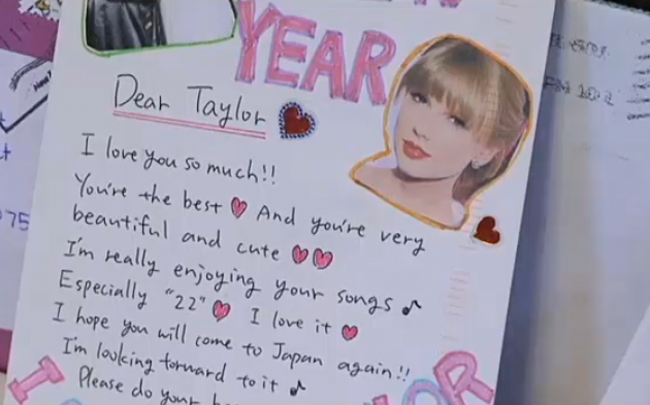 YEAR
Dear Taylor
I love you so much!!
You're the best ♥ And you're very
beautiful and cute ♥♥
I'm really enjoying your songs ♪
Especially "22" ♥ I love it ♥
I hope you will come to Japan again!!
I'm looking forward to it ♪
Please do your
75